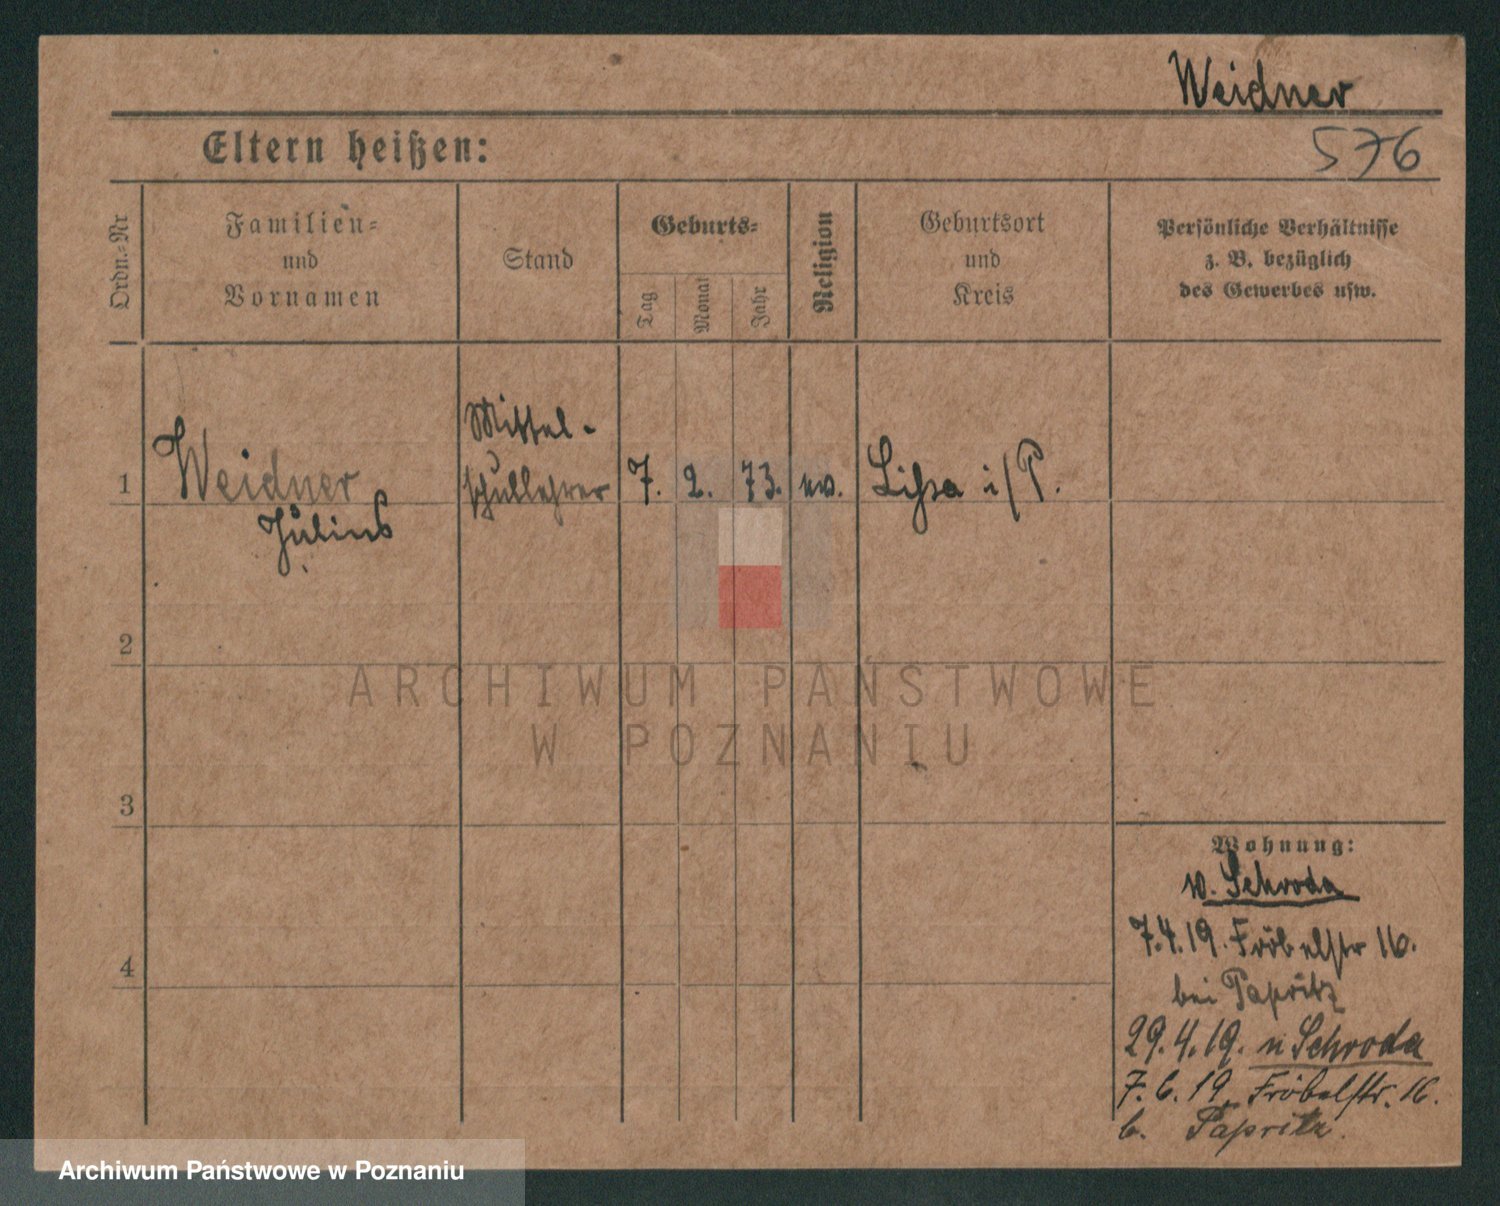 Weidner
Eltern heißen:
576
Ordn.=Nr
Familien=
und
Vornamen
Stand
Geburts=
Tag
Monat
Jahr
Religion
Geburtsort
und
Kreis
Persönliche Verhältnisse
z. B. bezüglich
des Gewerbes usw.
1
Weidner
Julius
Mittel-
schullehrer
7.
2.
73.
ev.
Lissa i/P.
2
3
4
Wohnung:
v. Schroda
7.4.19. Fröbelstr 16.
bei Papritz
29.4.19. n Schroda
7.6.19. Fröbelstr. 16.
b. Papritz.
ARCHIWUM PAŃSTWOWE
W POZNANIU
Archiwum Państwowe w Poznaniu